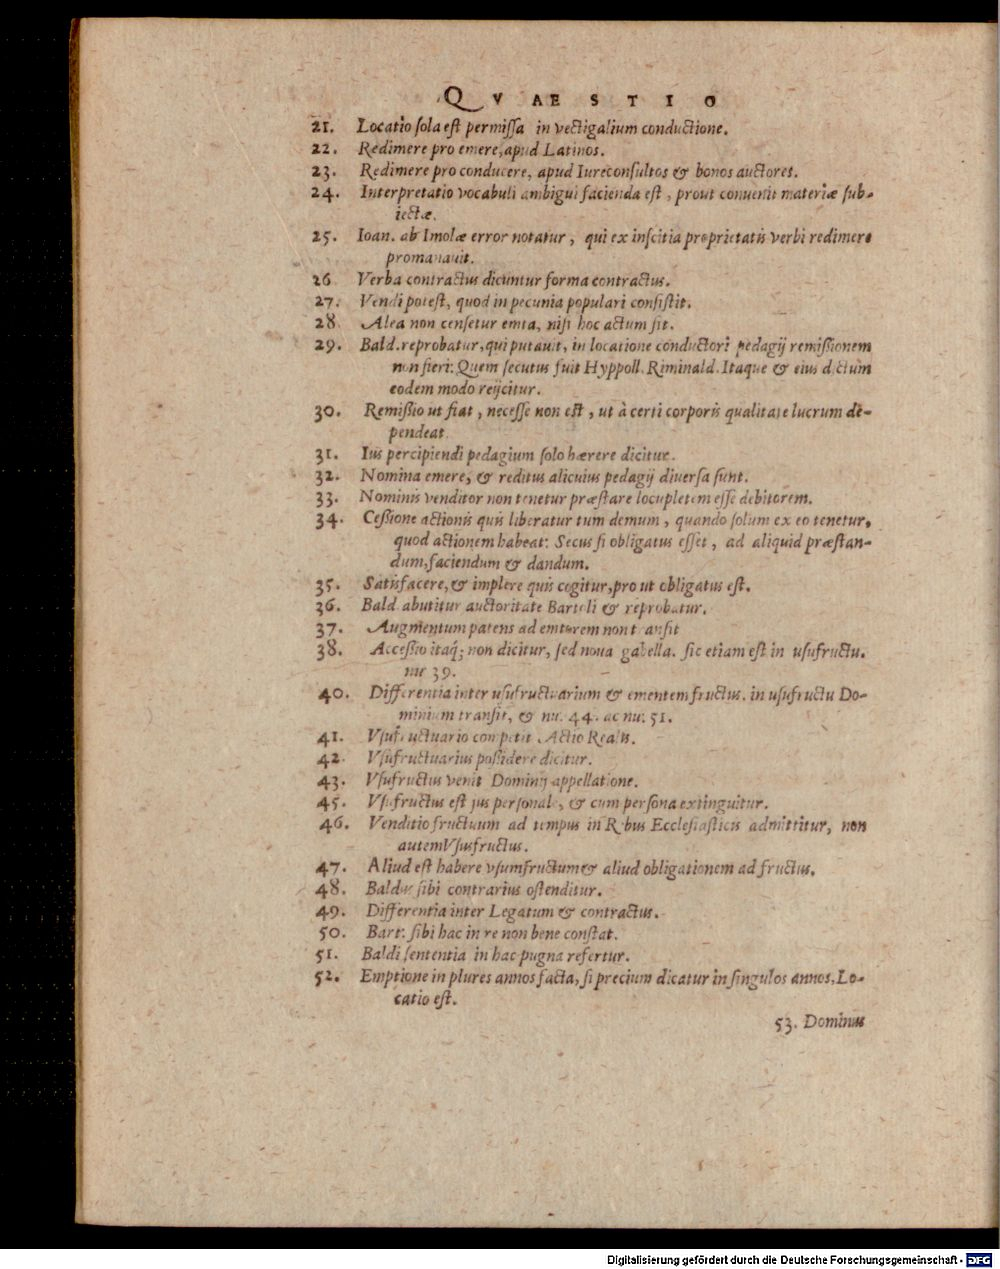 QVAESTIO
21. Locatio sola est permissa in vectigalium conductione.
22. Redimere pro emere, apud Latinos.
23. Redimere pro conducere, apud Iureconsultos & bonos auctores.
24. Interpretatio vocabuli ambigui facienda est, prout conuenit materiæ sub-
iectæ.
25. Ioan. ab Imola error notatur, qui ex inscitia proprietatis verbi redimere
promanauit.
26 Verba contractus dicuntur forma contractus.
27. Vendi potest, quod in pecunia populari consistit.
28 Alea non censetur emta, nisi hoc actum sit.
29. Bald. reprobatur, qui putauit, in locatione conductori pedagij remissionem
non fieri: Quem secutus fuit Hyppoll. Riminald. Itaque & eius dictum
eodem modo reijcitur.
30. Remissio ut fiat, necesse non est, ut à certi corporis qualitate lucrum de-
pendeat
31. Ius percipiendi pedagium solo hærere dicitur.
32. Nomina emere, & reditus alicuius pedagij diuersa sunt.
33. Nominis venditor non tenetur præstare locupletem esse debitorem.
34. Cessione actionis quis liberatur tum demum, quando solum ex eo tenetur,
quod actionem habeat: Secus si obligatus esset, ad aliquid præstan-
dum, faciendum & dandum.
35. Satisfacere, & implere quis cogitur, pro ut obligatus est.
36. Bald. abutitur auctoritate Bartoli & reprobatur.
37. Augmentum patens ad emtorem non transit
38. Accessio itaq; non dicitur, sed noua gabella. sic etiam est in usufructu.
nu 39.
40. Differentia inter usufructuarium & ementem fructus. in usufructu Do-
minium transit, & nu. 44. ac nu. 51.
41. Vsufructuario competit Actio Realis.
42. Vsufructuarius possidere dicitur.
43. Vsufructus venit Dominij appellatione.
45. Vsufructus est jus personale, & cum persona extinguitur.
46. Venditio fructuum ad tempus in Rebus Ecclesiasticis admittitur, non
autem Vsusfructus.
47. Aliud est habere vsumfructum & aliud obligationem ad fructus.
48. Baldus sibi contrarius ostenditur.
49. Differentia inter Legatum & contractus.
50. Bart: sibi hac in re non bene constat.
51. Baldi sententia in hac pugna refertur.
52. Emptione in plures annos facta, si precium dicatur in singulos annos, Lo-
catio est.
53. Dominus
Digitalisierung gefördert durch die Deutsche Forschungsgemeinschaft - DFG